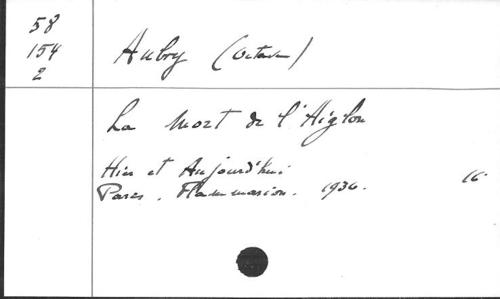 58
154
2
Aubry (Octave)
La Mort de l'Aiglon
Hier et Aujourd'hui
Paris. Flammarion. 1936. 16